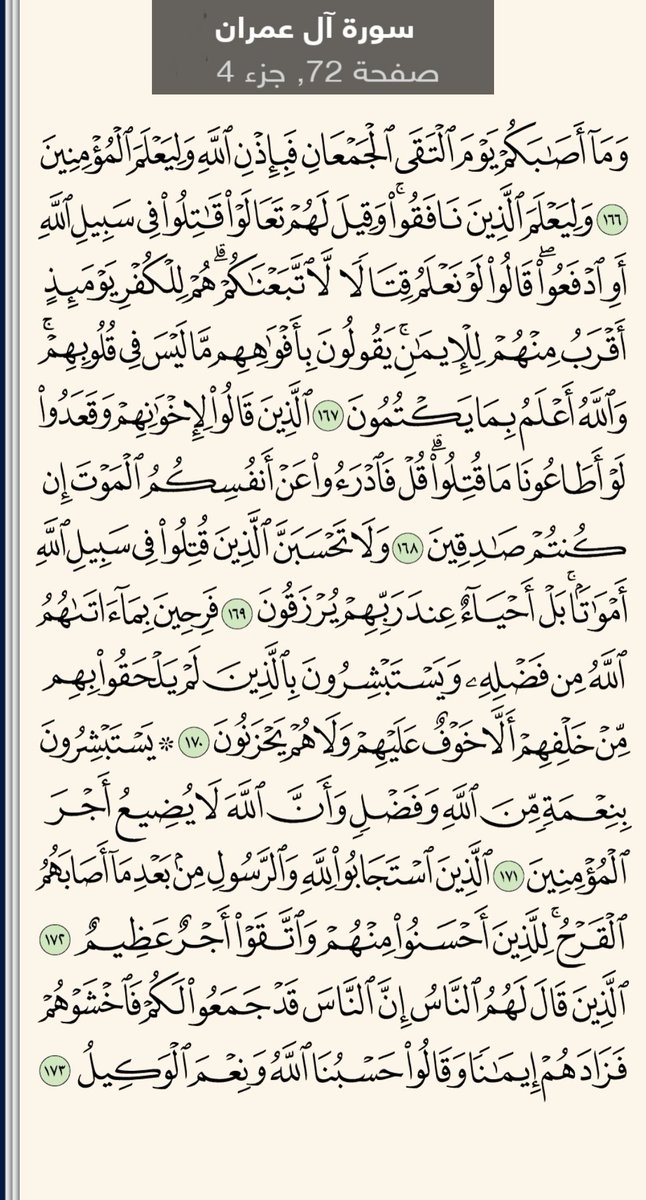 سورة آل عمران
صفحة 72, جزء 4
وَمَآ أَصَٰبَكُمْ يَوْمَ ٱلْتَقَى ٱلْجَمْعَانِ فَبِإِذْنِ ٱللَّهِ وَلِيَعْلَمَ ٱلْمُؤْمِنِينَ
١٦٦ وَلِيَعْلَمَ ٱلَّذِينَ نَافَقُوا۟ۚ وَقِيلَ لَهُمْ تَعَالَوْا۟ قَٰتِلُوا۟ فِى سَبِيلِ ٱللَّهِ
أَوِ ٱدْفَعُوا۟ۖ قَالُوا۟ لَوْ نَعْلَمُ قِتَالًا لَّٱتَّبَعْنَٰكُمْۗ هُمْ لِلْكُفْرِ يَوْمَئِذٍ
أَقْرَبُ مِنْهُمْ لِلْإِيمَٰنِۚ يَقُولُونَ بِأَفْوَٰهِهِم مَّا لَيْسَ فِى قُلُوبِهِمْۚ
وَٱللَّهُ أَعْلَمُ بِمَا يَكْتُمُونَ ١٦٧ ٱلَّذِينَ قَالُوا۟ لِإِخْوَٰنِهِمْ وَقَعَدُوا۟
لَوْ أَطَاعُونَا مَا قُتِلُوا۟ۗ قُلْ فَٱدْرَءُوا۟ عَنْ أَنفُسِكُمُ ٱلْمَوْتَ إِن
كُنتُمْ صَٰدِقِينَ ١٦٨ وَلَا تَحْسَبَنَّ ٱلَّذِينَ قُتِلُوا۟ فِى سَبِيلِ ٱللَّهِ
أَمْوَٰتًۢاۚ بَلْ أَحْيَآءٌ عِندَ رَبِّهِمْ يُرْزَقُونَ ١٦٩ فَرِحِينَ بِمَآ ءَاتَىٰهُمُ
ٱللَّهُ مِن فَضْلِهِۦ وَيَسْتَبْشِرُونَ بِٱلَّذِينَ لَمْ يَلْحَقُوا۟ بِهِم
مِّنْ خَلْفِهِمْ أَلَّا خَوْفٌ عَلَيْهِمْ وَلَا هُمْ يَحْزَنُونَ ١٧٠ * يَسْتَبْشِرُونَ
بِنِعْمَةٍ مِّنَ ٱللَّهِ وَفَضْلٍ وَأَنَّ ٱللَّهَ لَا يُضِيعُ أَجْرَ
ٱلْمُؤْمِنِينَ ١٧١ ٱلَّذِينَ ٱسْتَجَابُوا۟ لِلَّهِ وَٱلرَّسُولِ مِنۢ بَعْدِ مَآ أَصَابَهُمُ
ٱلْقَرْحُۚ لِلَّذِينَ أَحْسَنُوا۟ مِنْهُمْ وَٱتَّقَوْا۟ أَجْرٌ عَظِيمٌ ١٧٢
ٱلَّذِينَ قَالَ لَهُمُ ٱلنَّاسُ إِنَّ ٱلنَّاسَ قَدْ جَمَعُوا۟ لَكُمْ فَٱخْشَوْهُمْ
فَزَادَهُمْ إِيمَٰنًا وَقَالُوا۟ حَسْبُنَا ٱللَّهُ وَنِعْمَ ٱلْوَكِيلُ ١٧٣